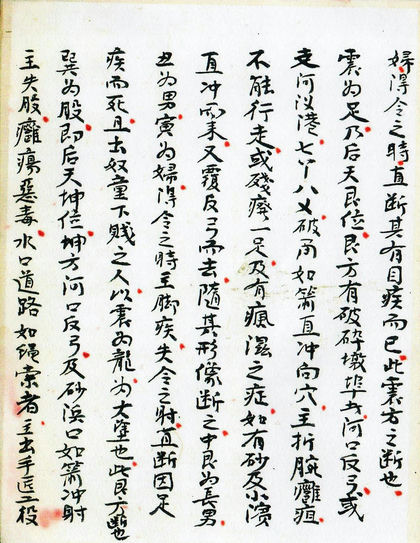 婦得令之時直断其有目疾而已此震方之断也
震为足乃后天艮位艮方有破碎墩埠或河口反弓或
走河汊港七丫八叉破角如箭直冲向穴主折腕癱疽
不能行走或殘療一足及有瘋濕之症如有砂及小濱
直冲而来又覆反弓而去随其形像断之中艮为長男
丑为男寅为婦得令之時主脚疾失令之时直断因足
疾而死且出奴童下賤之人以震为龍为大塗也此艮方断也
巽为股即后天坤位坤方河口反弓及砂浜口如箭冲射
主失股癱瘍惡毒水口道路如绳索者主出手匠工役